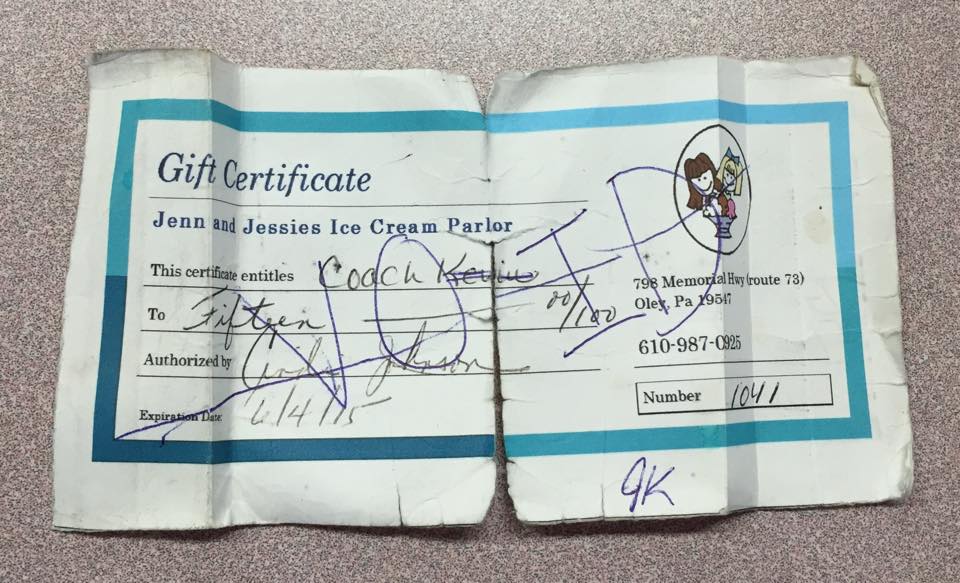 Gift Certificate
Jenn and Jessies Ice Cream Parlor
This certificate entitles Coach Kevin
To Fifteen 00/100
Authorized by Cindy Johnson
Expiration Date 6/4/15
VOID
798 Memorial Hwy (route 73)
Oley, Pa 19547
610-987-0925
Number 1041
JK